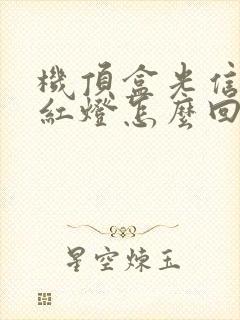 機頂盒光信
紅燈怎麼回
星空煉玉